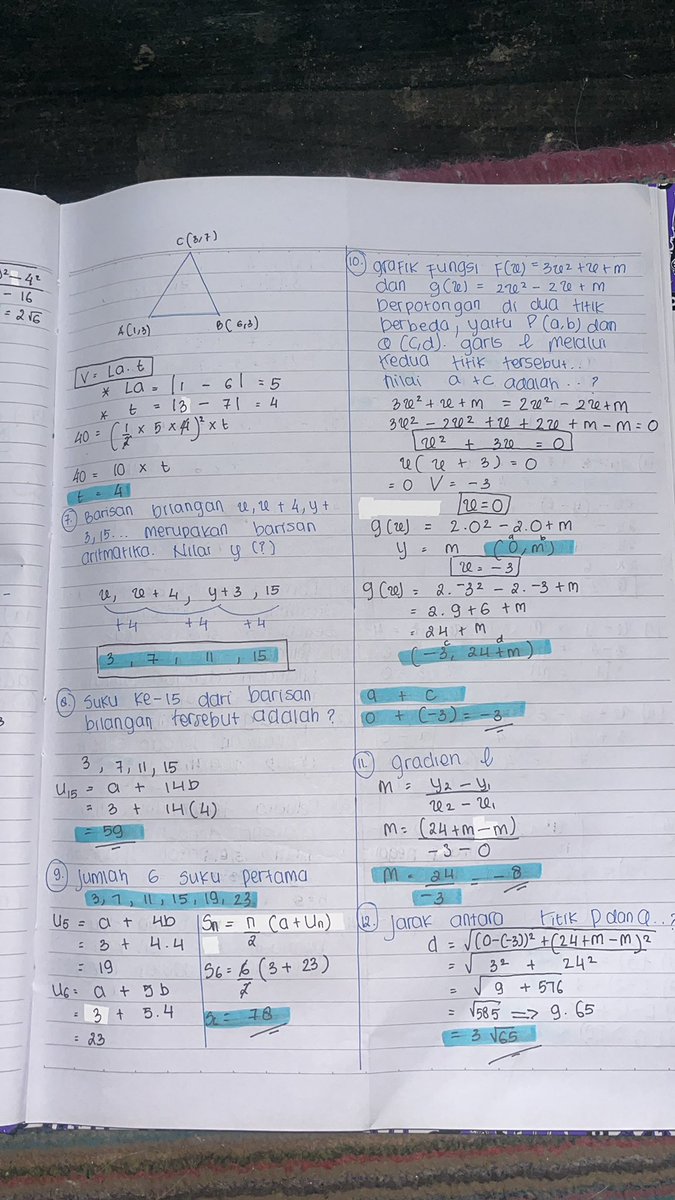 )² - 4²
- 16
= 2√6
C(3,7)
A(1,3)
B(6,3)
V = La.t
* La = |1 - 6| = 5
* t = |3 - 7| = 4
40 = (1/2 × 5 × 4)² × t
40 = 10 × t
t = 4
7. Barisan bilangan x, x + 4, y +
3, 15... merupakan barisan
aritmatika. Nilai y (?)
x, x + 4, y + 3, 15
+4 +4 +4
3, 7, 11, 15
8. Suku ke-15 dari barisan
bilangan tersebut adalah?
3, 7, 11, 15
U15 = a + 14b
= 3 + 14(4)
= 59
9. Jumlah 6 suku pertama
3, 7, 11, 15, 19, 23
U5 = a + 4b
= 3 + 4.4
= 19
U6 = a + 5b
= 3 + 5.4
= 23
Sn = n/2 (a + Un)
S6 = 6/2 (3 + 23)
= 78
10. grafik Fungsi F(x) = 3x² + x + m
dan g(x) = 2x² - 2x + m
berpotongan di dua titik
berbeda, yaitu P(a,b) dan
Q(C,d). garis l melalui
kedua titik tersebut..
nilai a + c adalah...?
3x² + x + m = 2x² - 2x + m
3x² - 2x² + x + 2x + m - m = 0
x² + 3x = 0
x(x + 3) = 0
= 0 V = -3
x = 0
g(x) = 2.0² - 2.0 + m
a b
y = m (0, m)
x = -3
g(x) = 2.-3² - 2.-3 + m
= 2.9 + 6 + m
= 24 + m
c d
(-3, 24 + m)
a + c
0 + (-3) = -3
11. gradien l
m = y2 - y1 / x2 - x1
m = (24 + m - m) / -3 - 0
m = 24 / -3 = -8
12. jarak antara titik P dan Q..?
d = √(0-(-3))² + (24 + m - m)²
= √3² + 24²
= √9 + 576
= √585 ⇒ 9.65
= 3√65